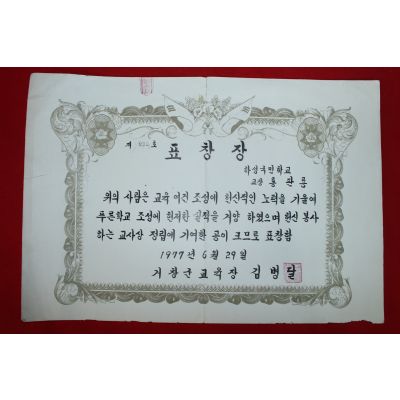 제 호
표창장
하성국민학교
교장 홍완룡
위의 사람은 교육 여건 조성에 헌신적인 노력을 기울여
푸른학교 조성에 현저한 실적을 거양 하였으며 헌신 봉사
하는 교사상 정립에 기여한 공이 크므로 표창함
1977년 6월 29일
거창군교육장 김병달